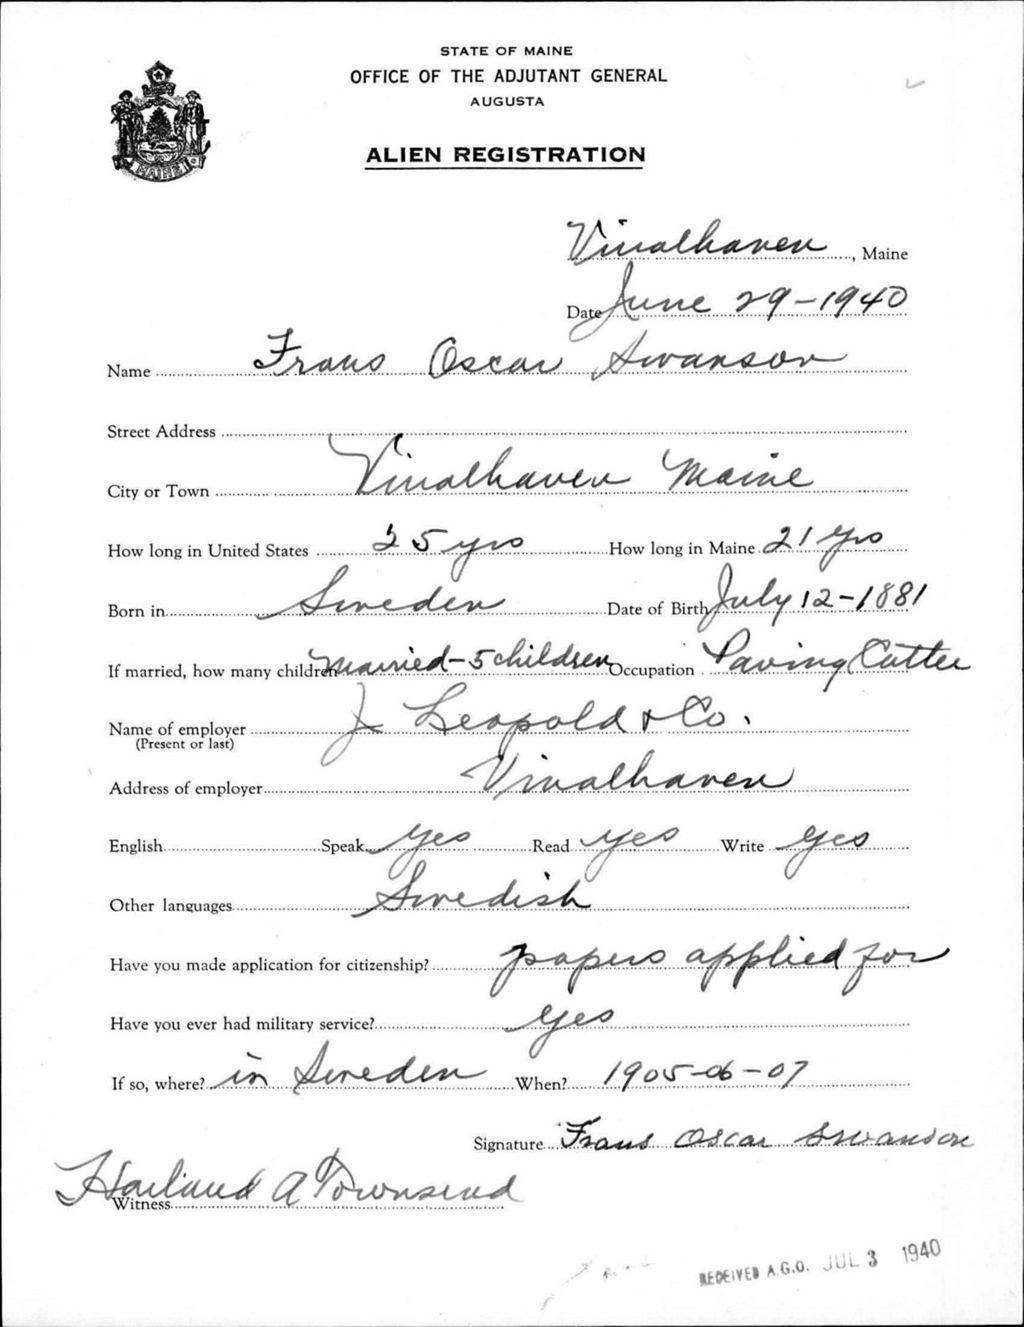 STATE OF MAINE
OFFICE OF THE ADJUTANT GENERAL
AUGUSTA
MAINE
ALIEN REGISTRATION
Vinalhaven, Maine
Date June 29-1940
Name Frans Oscar Swanson
Street Address
City or Town Vinalhaven Maine
How long in United States 25 yrs How long in Maine 21 Yrs
Born in Sweden Date of Birth July 12-1881
If married, how many children Married-5 children Occupation Paving Cutter
Name of employer J Leopold & Co.
(Present or last)
Address of employer Vinalhaven
English Speak yes Read yes Write yes
Other languages Swedish
Have you made application for citizenship? papers applied for
Have you ever had military service? yes
If so, where? in Sweden When? 1905-06-07
Signature Frans Oscar Swanson
Harland A Townsend
Witness
RECEIVED A.G.O. JUL 3 1940